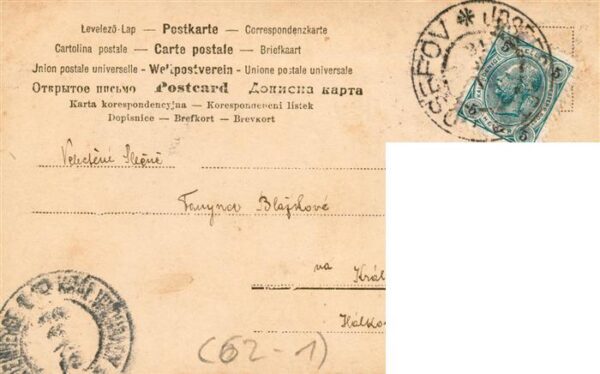 Levelező-Lap — Postkarte — Correspondenzkarte
Cartolina postale — Carte postale — Briefkaart
Union postale universelle — Weltpostverein — Unione postale universale
Открытое письмо Postcard Дописна карта
Karta korespondencyjna — Korespondenční lístek
Dopisnice — Brefkort — Brevkort
JOSEFOV * Josef
5 5
5 5
Velectěné Slečně
Blažkové
na Král
Hálko
(62-1)